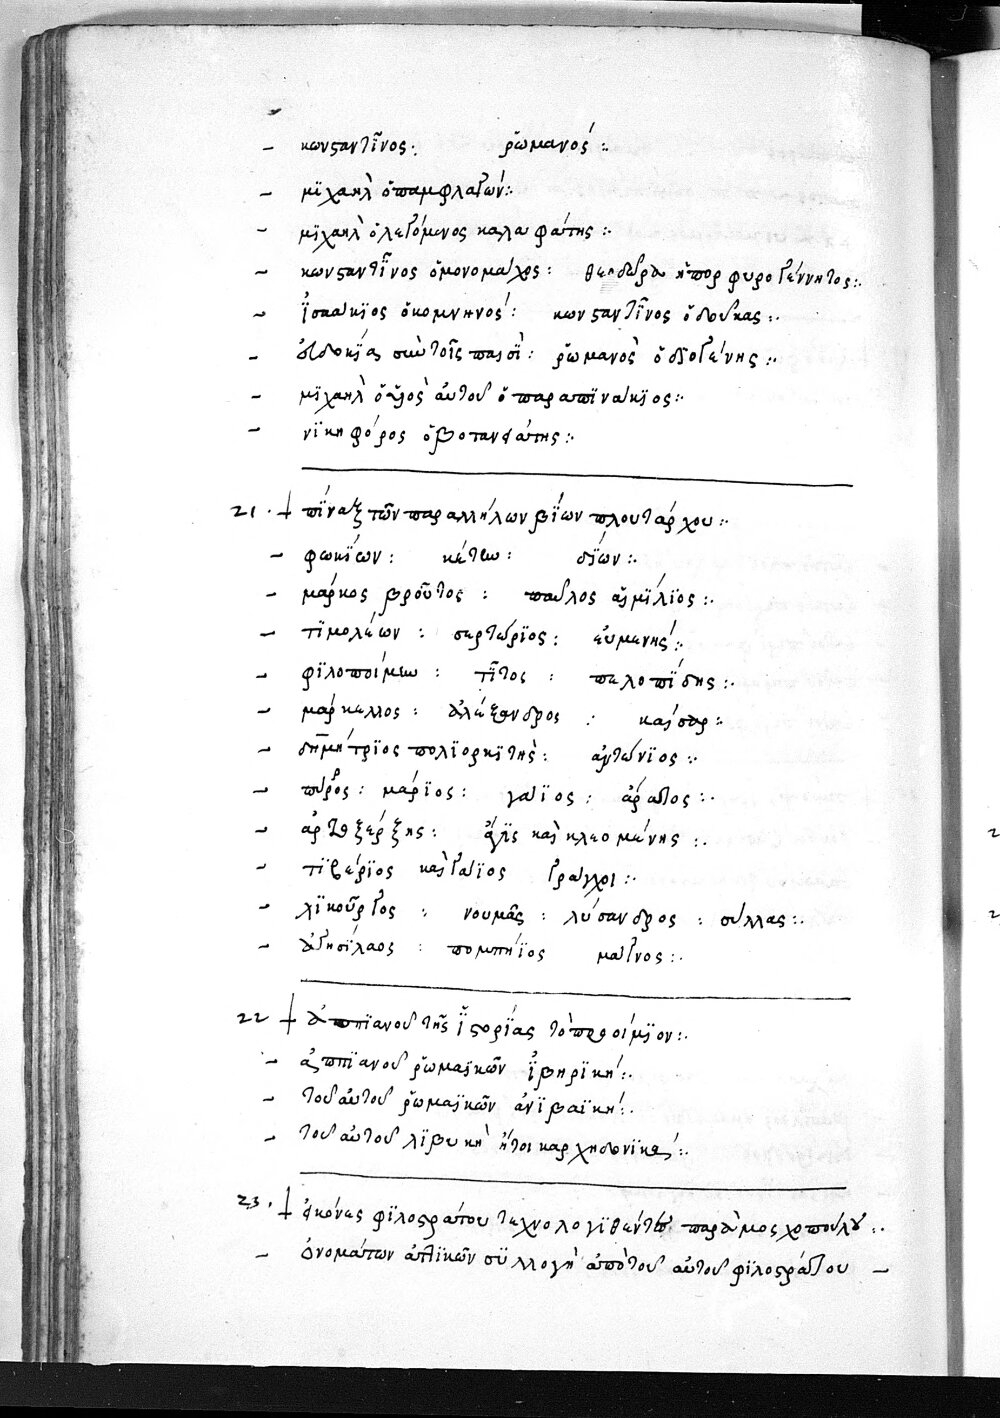 – κωνσταντῖνος· ῥωμανός :·
– μϊχαὴλ ὁ παμφλαγών :·
– μϊχαὴλ ὁ λεγόμενος καλαφάτης :·
– κωνσταντῖνος ὁ μονομάχος : θεηδώρα ἡ πορφυρογέννητος :·
– ἰσαάκϊος ὁ κομνηνός : κωνσταντῖνος ὁ δούκας :·
– εὐδοκία σὺν τοῖς παισὶ : ῥωμανὸς ὁ διογένης :·
– μϊχαὴλ ὁ υἱὸς αὐτοῦ ὁ παραπϊνάκϊος :·
– νϊκηφόρος ὁ βοτανϊάτης :·
21. † πίναξ τῶν παραλλήλων βίων πλουτάρχου :·
– φωκίων : κάτων : δίων :·
– μάρκος βροῦτος : παῦλος αἰμίλϊος :·
– τϊμολέων : σερτώρϊος : εὐμενής :·
– φϊλοποίμεν : τῖτος : πελοπίδης :·
– μάρκελλος : ἀλέξανδρος : καῖσαρ :·
– δημήτρϊος πολϊορκϊτὴς : ἀντώνϊος :·
– πύρρος : μάρϊος : γαϊος : ἄρατος :·
– ἀρταξέρξης : ἄγϊς καὶ κλεομένης :·
– τϊβέρϊος καὶ γάϊος γράγχοι :·
– λϊκοῦργος : νουμᾶς : λύσανδρος : σύλλας :·
– ἀγησίλαος : πομπήϊος μάγνος :·
22 † ἀππϊανοῦ τῆς ἱστορίας τὸ προοίμϊον :·
– ἀππϊανοῦ ῥωμαϊκῶν ἰβηρϊκή :·
– τοῦ αὐτοῦ ῥωμαϊκῶν ἀνϊβαϊκή :·
– τοῦ αὐτοῦ λϊβυκὴ ἤτοι καρχηδονϊκή :·
23. † εἰκόνες φϊλοστράτου τεχνολογϊθέντων παρὰ μοσχοπούλου :·
– ὀνομάτων ἀττϊκῶν συλλογὴ ἀπὸ τοῦ αὐτοῦ φϊλοστράτου –